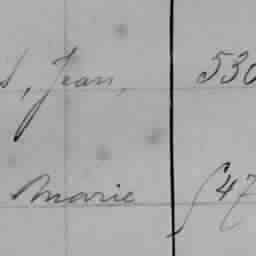 , Jean, 530
Marie 547